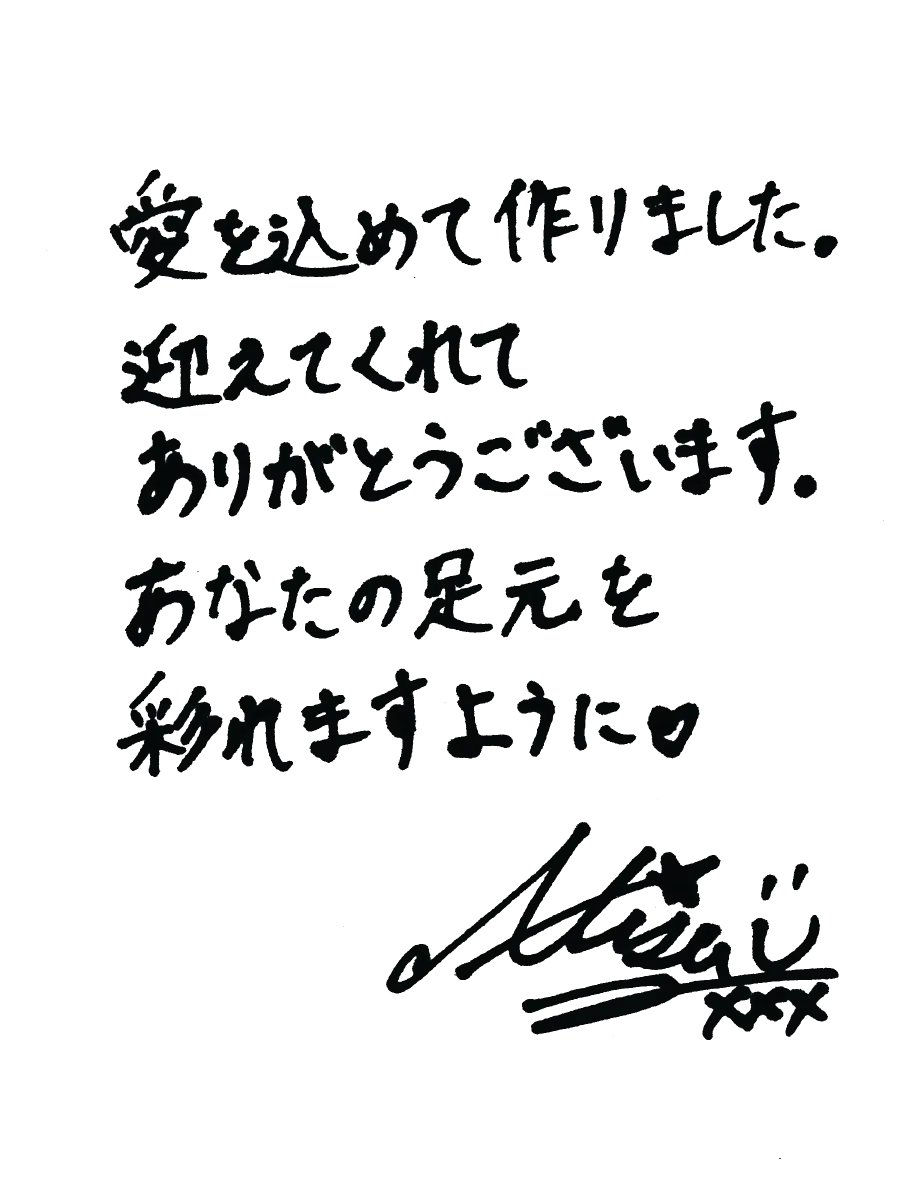 愛を込めて作りました。
迎えてくれて
ありがとうございます。
あなたの足元を
彩れますように♡
Misa
xxx